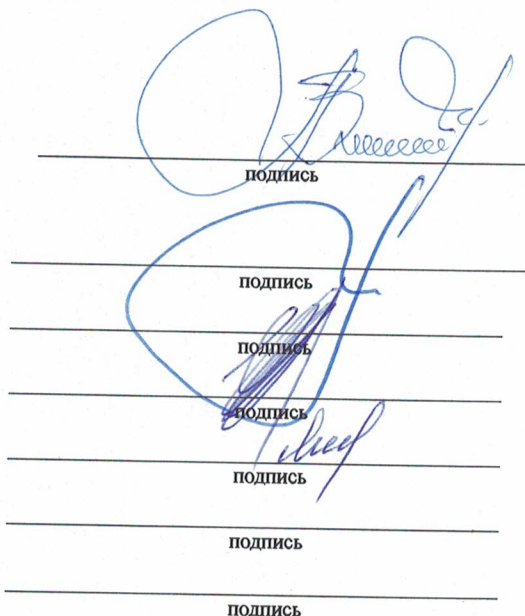 подпись
подпись
подпись
подпись
подпись
подпись
подпись